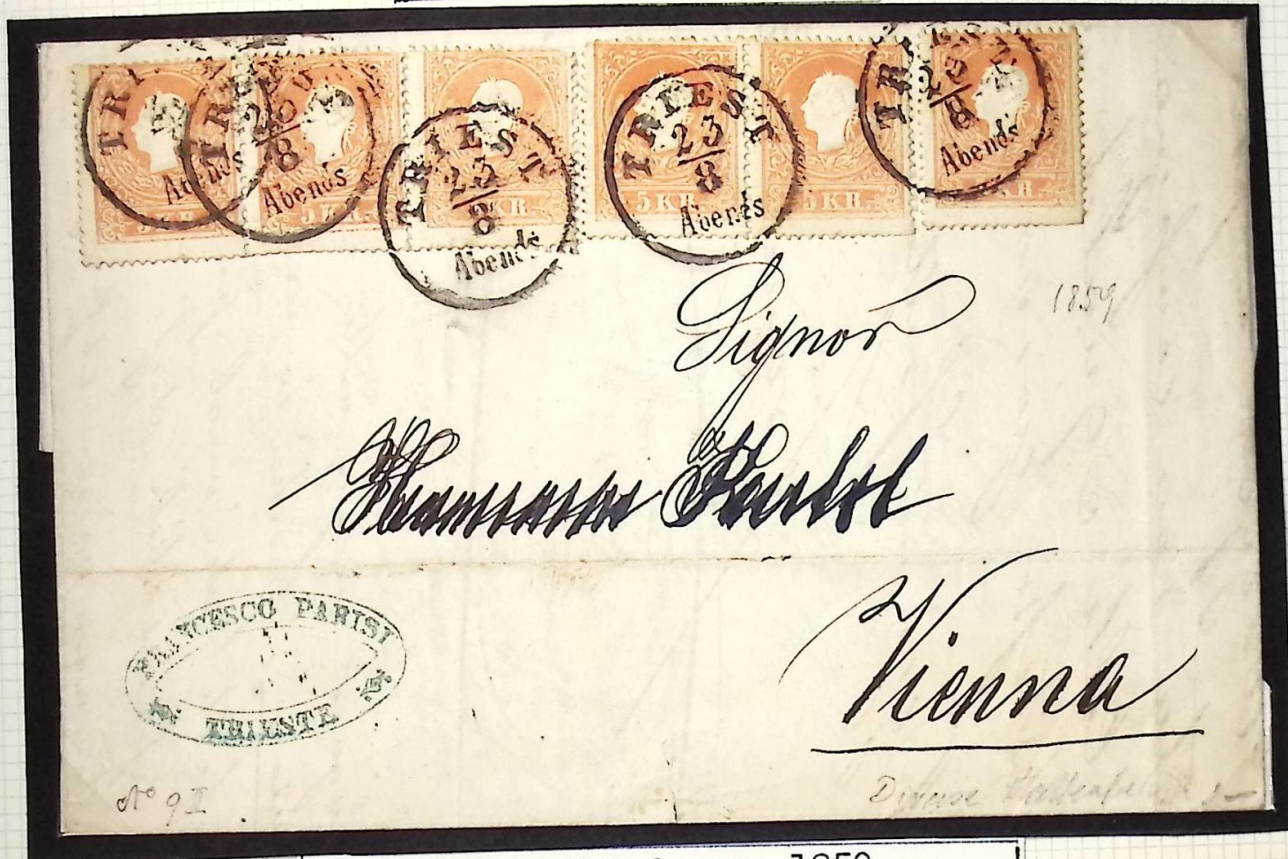 TRIEST
23
8
Abends
TRIEST
23
8
Abends
TRIEST
23
8
Abends
TRIEST
23
8
Abends
TRIEST
23
8
Abends
KR.
5 KR.
KR.
5 KR.
5 KR.
KR.
1859
Signor
Vienna
FRANCESCO PARISI
TRIESTE
No 9 II
1859